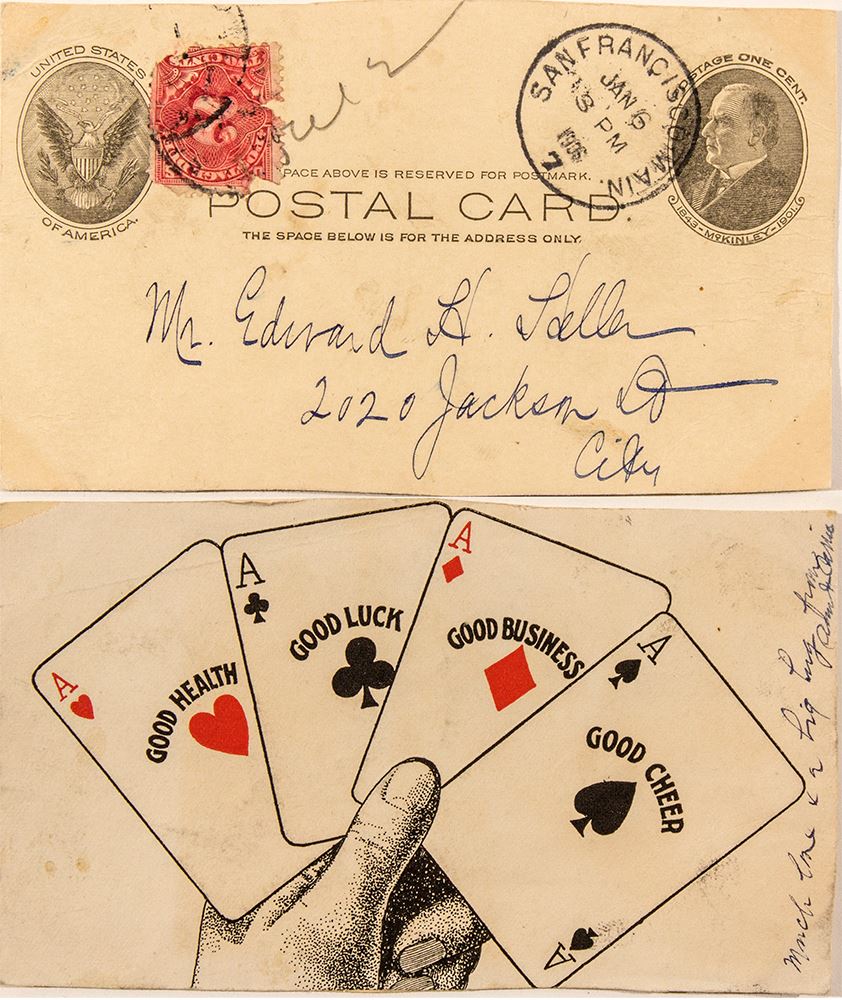 UNITED STATES
OF AMERICA.
2
SAN FRANCISCO MAIN
JAN 6
8 PM
1906
7
POSTAGE ONE CENT.
1843-McKINLEY-1901.
SPACE ABOVE IS RESERVED FOR POSTMARK.
POSTAL CARD.
THE SPACE BELOW IS FOR THE ADDRESS ONLY.
Mr. Edward H. Heller
2020 Jackson St
City
A
GOOD HEALTH
A
GOOD LUCK
A
GOOD BUSINESS
A
GOOD CHEER
A
Much love & a big hug from